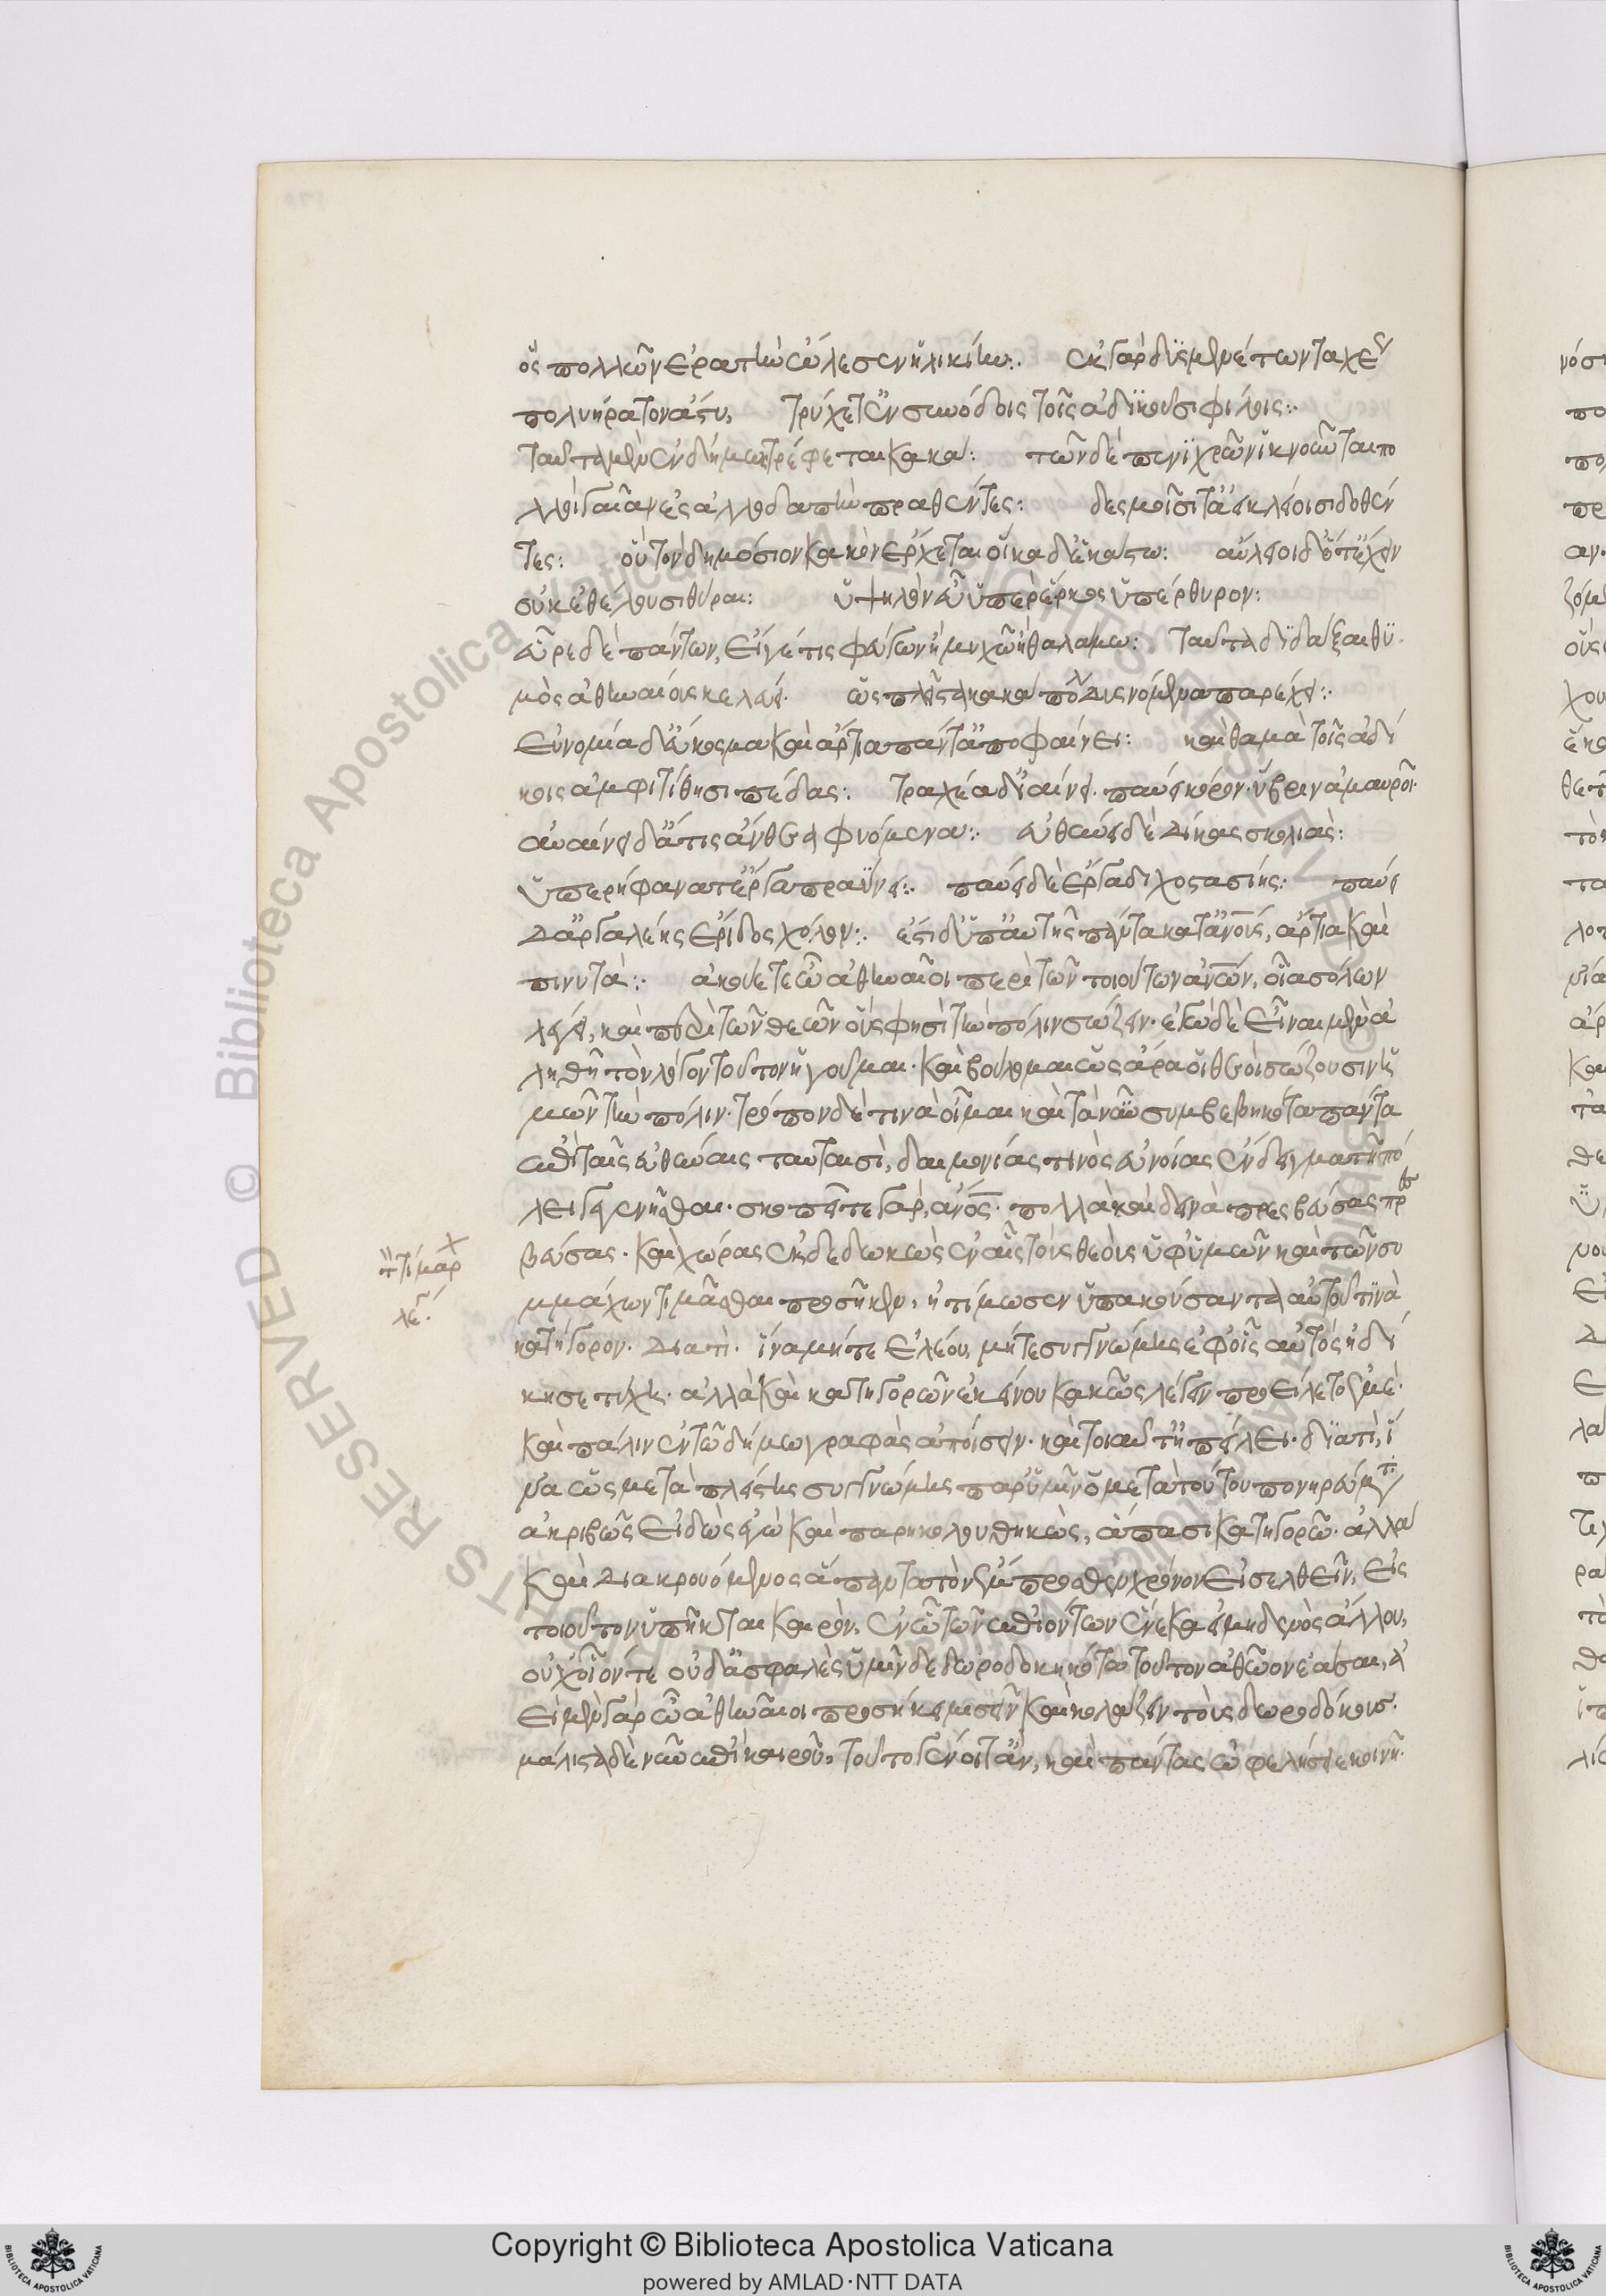 ὃς πολλῶν ἐρατὴν ὤλεσεν ἡλικίην:· ἐκ γὰρ δυσμενέων ταχέως
πολυήρατον ἄστυ, τρύχετ' ἐν συνόδοις τοῖς ἀδικοῦσι φίλοις:·
ταῦτα μὲν ἐν δήμω τρέφεται κακά: τῶν δὲ πενιχρῶν ἱκνοῦνται πο
λλοὶ γαῖαν ἐς ἀλλοδαπὴν πραθέντες: δεσμοῖσί τ' ἀεικελίοισι δεθέν
τες: οὕτω δημόσιον κακὸν ἔρχεται οἴκαδ' ἑκάστω: αὔλειοι δ' ἔτ' ἔχειν
οὐκ ἐθέλουσι θύραι: ὑψηλὸν δ' ὑπὲρ ἕρκος ὑπέρθορον:
εὗρε δὲ πάντων, εἴ γέ τις φεύγων ἐν μυχῶ ἢ θαλάμω: ταῦτα διδάξαι θυ
μὸς ἀθηναίους κελεύει. ὡς πλεῖστα κακὰ πόλει δυσνομία παρέχει:·
Εὐνομία δ' εὔκοσμα καὶ ἄρτια πάντ' ἀποφαίνει: καὶ θαμὰ τοῖς ἀδί
κοις ἀμφιτίθησι πέδας: τραχέα λειαίνει. παύει κόρον. ὕβριν ἀμαυροῖ.
αὐαίνει δ' ἄτης ἄνθεα φυόμενα:· εὐθύνει δὲ δίκας σκολιὰς:
ὑπερήφανά τ' ἔργα πραΰνει:· παύει δὲ ἔργα διχοστασίης: παύει
δ' ἀργαλέης ἔριδος χόλον:· ἔστι δ' ὑπ' αὐτῆς πάντα κατ' ἀνους, ἄρτια καὶ
πινυτά:· ἀκούετε ὦ ἀθηναῖοι περὶ τῶν τοιούτων ἀνων, οἷα σόλων
λέγει, καὶ περὶ τῶν θεῶν οὕς φησὶ τὴν πόλιν σώζειν. ἐγὼ δὲ εἶναι μὲν ἀ
ληθῆ τὸν λόγον τοῦτον ἡγοῦμαι. καὶ βούλομαι ὡς ἄρα οἱ θεοὶ σώζουσιν ὑ
μῶν τὴν πόλιν. τρόπον δέ τινα οἶμαι καὶ τὰ νῦν συμβεβηκότα πάντα
ἐπὶ ταῖς εὐθύναις ταυταισὶ, δαιμονίας τινὸς εὐνοίας ἔνδειγμα τῆ πό
λει γεγενῆσθαι. σκοπεῖτε γάρ, ἀνος. πολλὰ καὶ δεινὰ πρεσβεύσας πρεσ
βεύσας. καὶ χώρας ἐκδεδωκὼς ἐν αἷς τοὺς θεοὺς ὑφ' ὑμῶν καὶ τῶν συ
μμάχων τιμᾶσθαι προσῆκεν, ἠτίμωσεν ὑπακούσαντα αὑτοῦ τινὰ
κατήγορον. διατί. ἵνα μήτε ἐλέου, μήτε συγγνώμης ἐφ' οἷς αὐτὸς ἠδί
κησε τύχη. ἀλλὰ καὶ κατηγορῶν ἐκείνου κακῶς λέγειν προείλετό με.
καὶ πάλιν ἐν τῶ δήμω γραφὰς ἀποίσειν. καὶ τοιαῦτ' ἠπείλει. διατί, ἵ
να ὡς μετὰ πλείστης συγγνώμης παρ' ὑμῖν ὁ μετὰ τούτου πονηρεύματ'
ἀκριβῶς εἰδὼς ἐγὼ καὶ παρηκολουθηκὼς, ἅπασι κατηγορῶ. ἀλλὰ
καὶ διακρουόμενος ἅπαντα τὸν ἔμπροσθεν χρόνον εἰσελθεῖν, εἰς
τοιοῦτον ὑπῆκται καιρὸν, ἐν ὧ τῶν ἐπιόντων ἕνεκα εἰ μηδενὸς ἄλλου,
οὐχ οἷόν τε οὐδ' ἀσφαλὲς ὑμῖν δεδωροδοκηκότα τοῦτον ἀθῶον ἐᾶσαι, ἀ
εὶ μὲν γὰρ ὦ ἀθηναῖοι προσήκει μισεῖν καὶ κολάζειν τοὺς δωροδόκους.
μάλιστα δὲ νῦν ἐπὶ καιροῦ, τοῦτο γένοιτ' ἂν, καὶ πάντας ὠφελήσειε κοινῆ.
τίμαρχ
λέγ